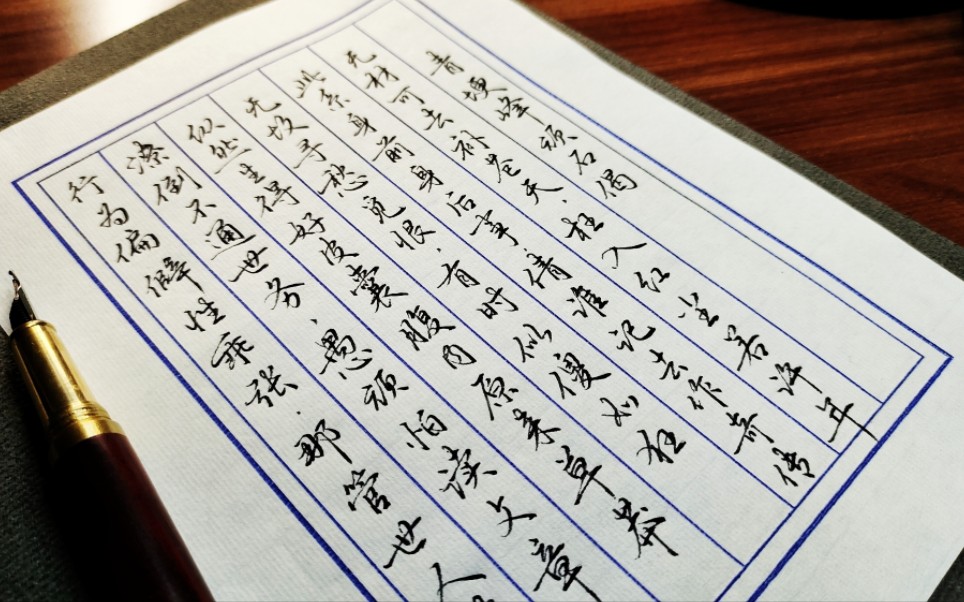 青埂峰顽石偈
无材可去补苍天，枉入红尘若许年
此系身前身后事，倩谁记去作奇传
无故寻愁觅恨，有时似傻如狂
纵然生得好皮囊腹内原来草莽
潦倒不通世务，愚顽怕读文章
行为偏僻性乖张，那管世人